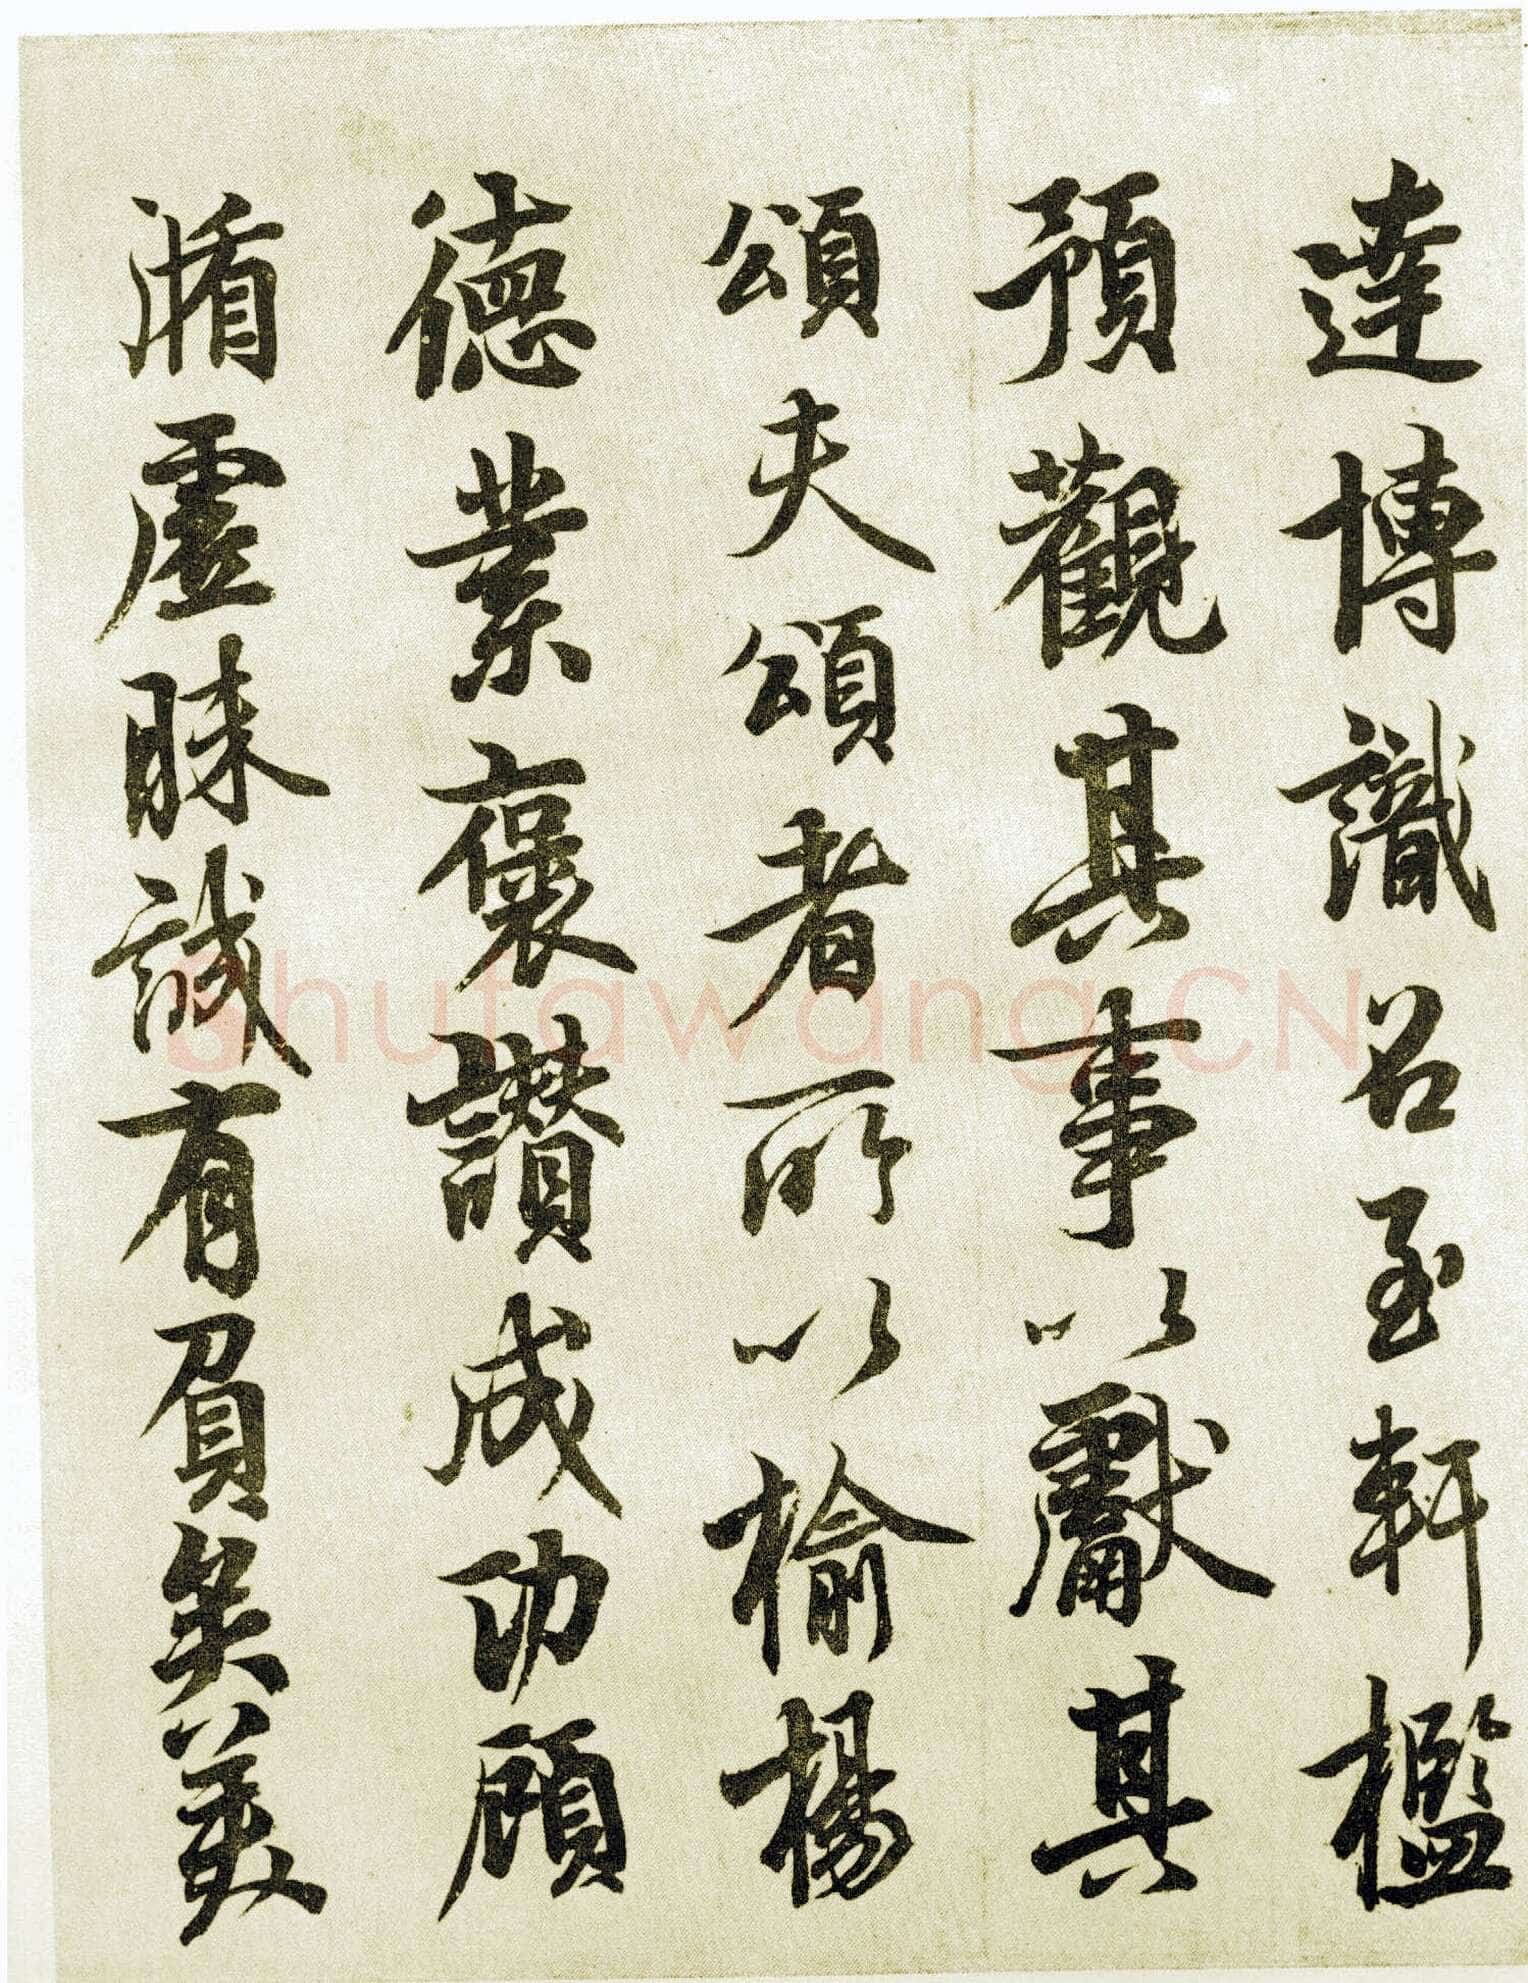 達博識召至軒檻
預觀其事以獻其
頌夫頌者所以揄揚
德業褒讚成功顧
循虛昧誠有負矣美
Shufawang.CN